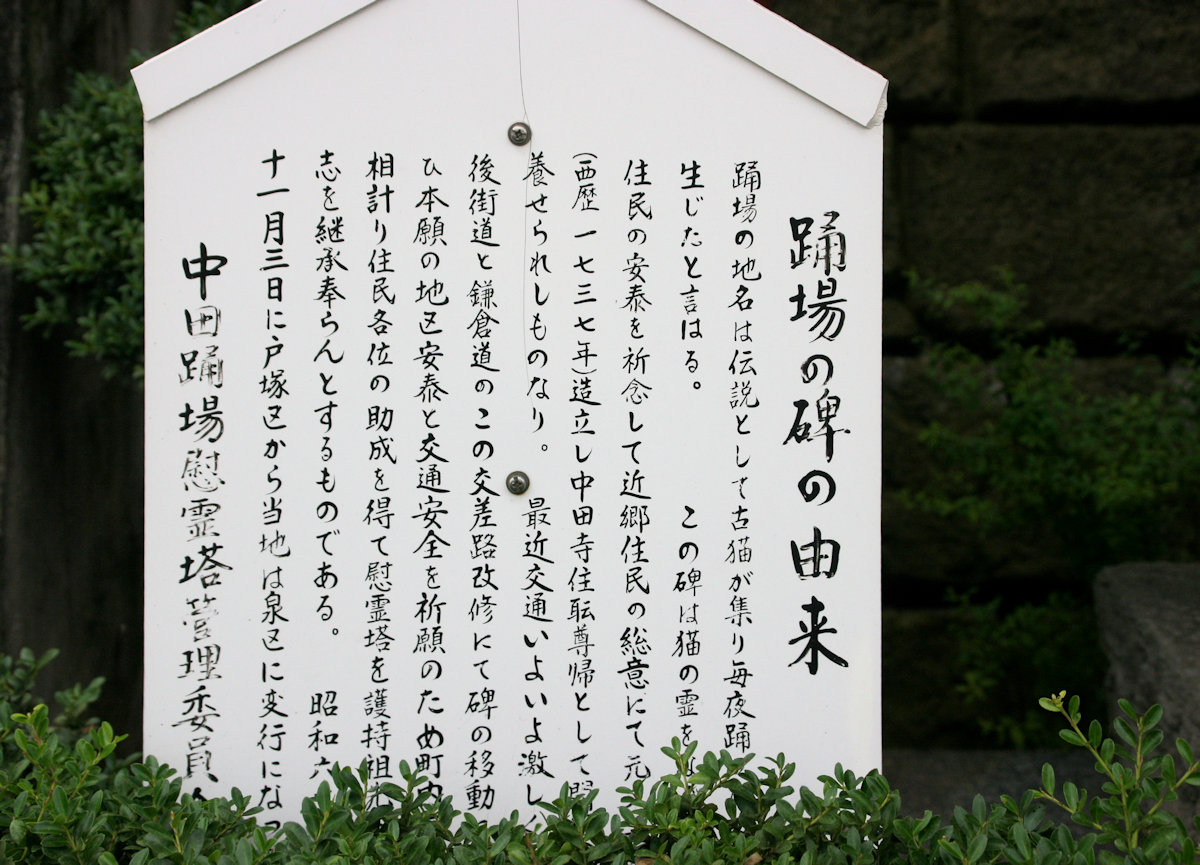 踊場の碑の由来
踊場の地名は伝説として古猫が集り毎夜踊
生じたと言はる。　この碑は猫の霊を
住民の安泰を祈念して近郷住民の総意にて元
(西歴一七三七年)造立し中田寺住耘尊帰として開
養せられしものなり。　最近交通いよいよ激し
後街道と鎌倉道のこの交差路改修にて碑の移動
ひ本願の地区安泰と交通安全を祈願のため町内
相計り住民各位の助成を得て慰霊塔を護持祖来
志を継承奉らんとするものである。　昭和六
十一月三日に戸塚区から当地は泉区に変行にな
中田踊場慰霊塔管理委員